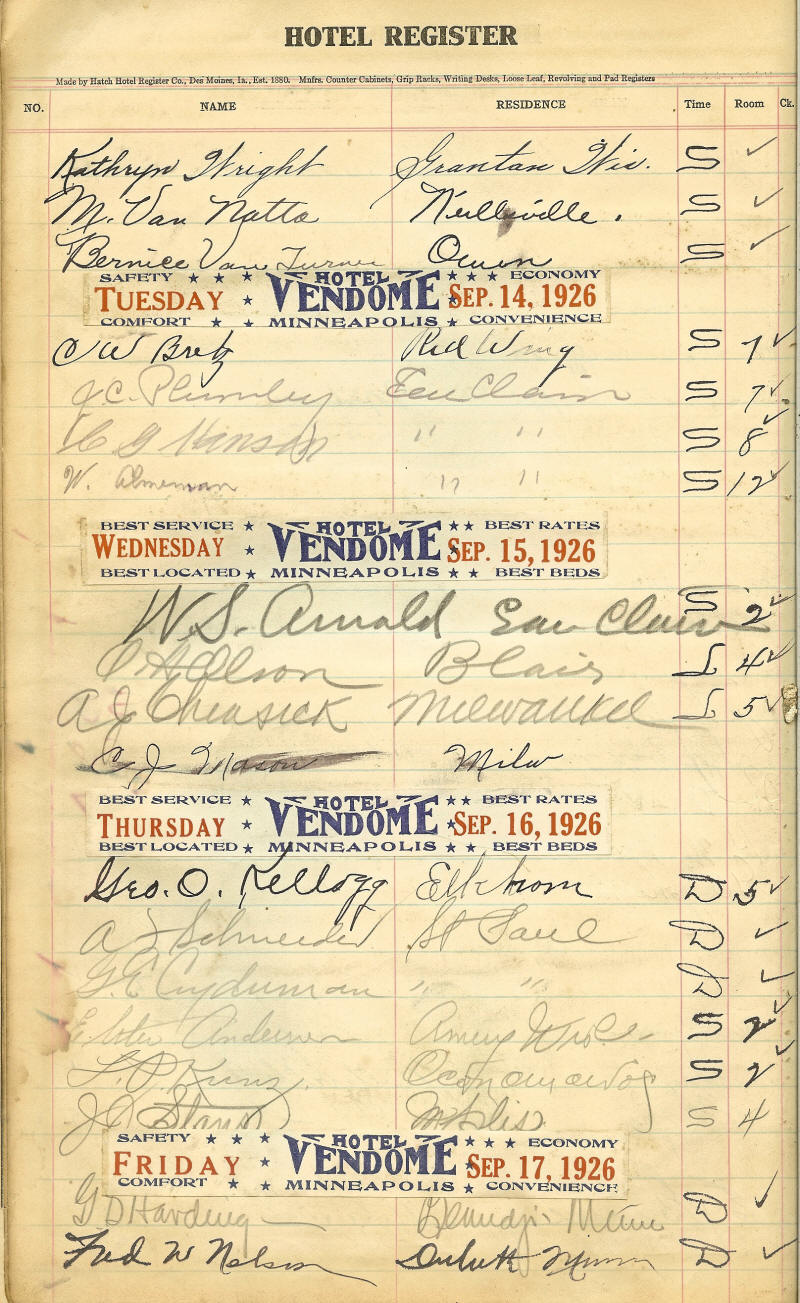 HOTEL REGISTER
Made by Hatch Hotel Register Co., Des Moines, Ia., Est. 1880. Mnfrs. Counter Cabinets, Grip Racks, Writing Desks, Loose Leaf, Revolving and Pad Registers
NO. NAME RESIDENCE Time Room Ck.
Kathryn Wright Granton Wis. S ✓
M. Van Natta Neillsville. S ✓
Bernice Van Turner Owen S ✓
SAFETY ★ ★ ★ HOTEL ★ ★ ★ ECONOMY
TUESDAY ★ VENDOME ★ SEP. 14, 1926
COMFORT ★ ★ MINNEAPOLIS ★ CONVENIENCE
C W Bretz Red Wing S 7 ✓
J C. Plumley Eau Claire S 7 ✓
G Hanson " " S 8 ✓
W. " " S 12 ✓
BEST SERVICE ★ HOTEL ★ ★ BEST RATES
WEDNESDAY ★ VENDOME ★ SEP. 15, 1926
BEST LOCATED ★ MINNEAPOLIS ★ ★ BEST BEDS
W. S. Arnold Eau Claire S 2 ✓
Olson Blair S 4 ✓
A J Cheasick Milwaukee S 5 ✓
C J Mason Milw
BEST SERVICE ★ HOTEL ★ ★ BEST RATES
THURSDAY ★ VENDOME ★ SEP. 16, 1926
BEST LOCATED ★ MINNEAPOLIS ★ ★ BEST BEDS
Geo. O. Kellogg D 5 ✓
A J Schneider St Paul D ✓
G. E " " D ✓
Andersen Amery S 2 ✓
L. P. S 2 ✓
J Mpls S 4
SAFETY ★ ★ HOTEL ★ ★ ★ ECONOMY
FRIDAY ★ VENDOME ★ SEP. 17, 1926
COMFORT ★ ★ MINNEAPOLIS ★ CONVENIENCE
G D Harding Bemidji Minn D ✓
Fred W Nelson Duluth Minn D ✓